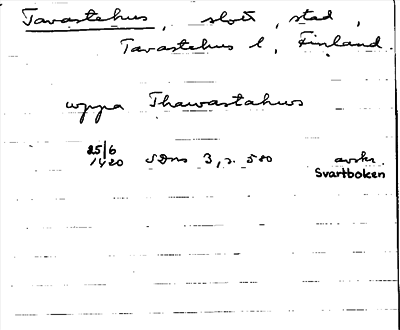 Tavastehus, slott, stad,
Tavastehus l, Finland.
uppa Thawastahws
25/6
1420 SDns 3, s. 580 avskr.
Svartboken